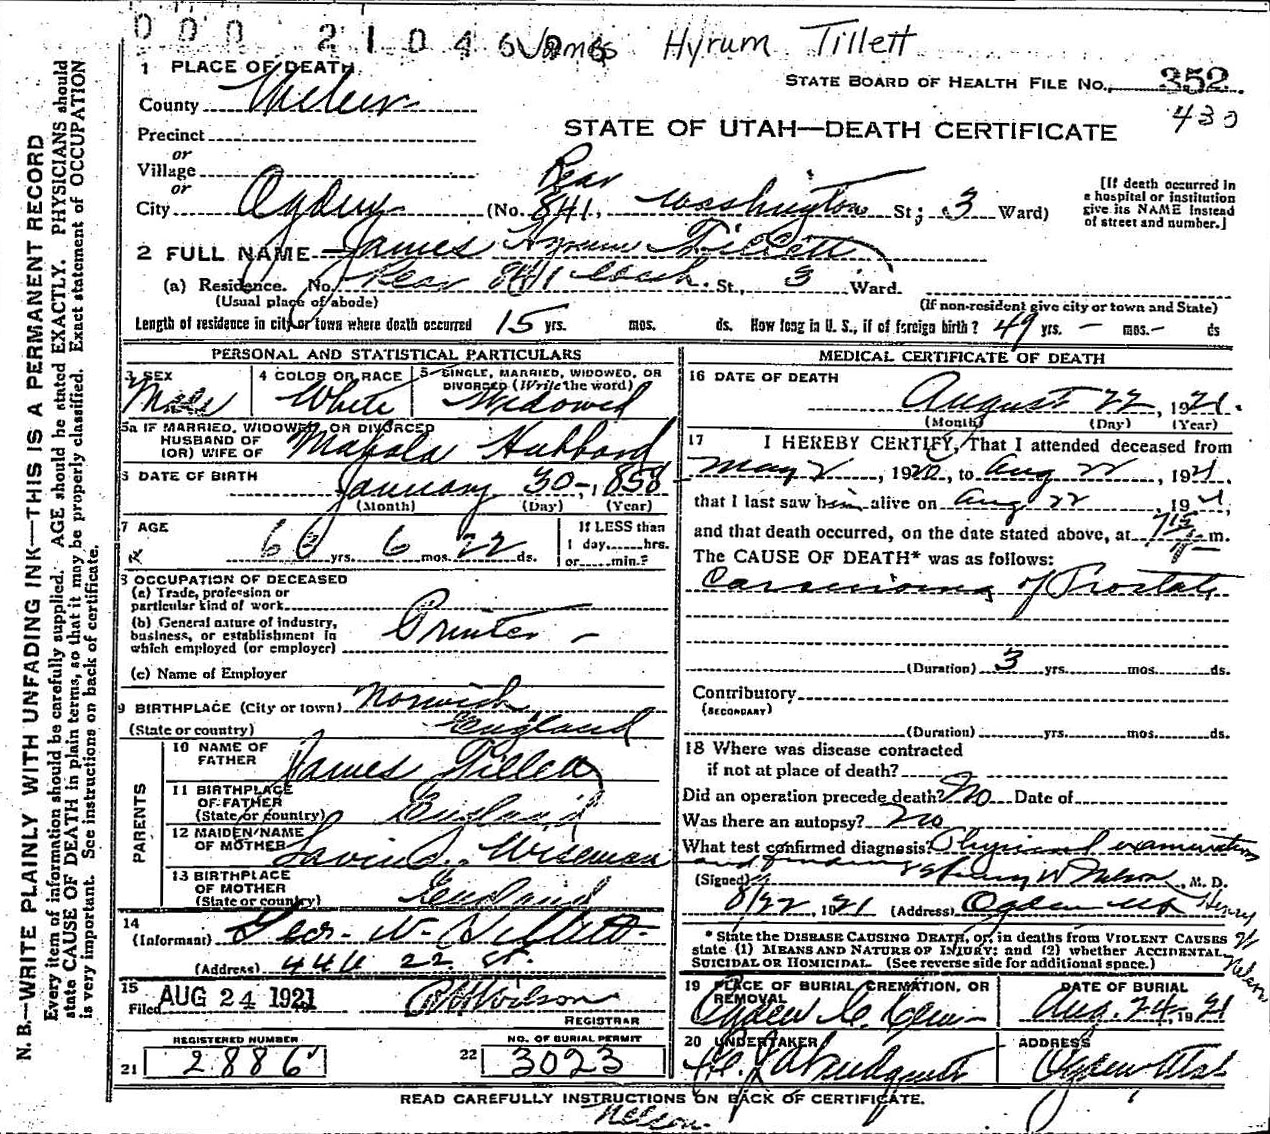 000 210468 James Hyrum Tillett
1 PLACE OF DEATH
STATE BOARD OF HEALTH FILE NO. 352
430
County Weber
STATE OF UTAH—DEATH CERTIFICATE
Precinct
or
Village
or
City Ogden (No. Rear 841 Washington St; 3 Ward)
[If death occurred in
a hospital or institution
give its NAME instead
of street and number.]
2 FULL NAME James Hyrum Tillett
(a) Residence. No. Rear 841 Wash. St., 3 Ward.
(Usual place of abode) (If non-resident give city or town and State)
Length of residence in city or town where death occurred 15 yrs. mos. ds. How long in U. S., if of foreign birth? 49 yrs. – mos. – ds
PERSONAL AND STATISTICAL PARTICULARS
3 SEX Male
4 COLOR OR RACE White
5 SINGLE, MARRIED, WIDOWED, OR
DIVORCED (Write the word)
Widowed
5a IF MARRIED, WIDOWED, OR DIVORCED
HUSBAND OF
(OR) WIFE OF Hubbard
6 DATE OF BIRTH January 30-, 1858
(Month) (Day) (Year)
7 AGE 6 yrs. 6 mos. 22 ds.
If LESS than
1 day, hrs.
or min.?
8 OCCUPATION OF DECEASED
(a) Trade, profession or
particular kind of work
(b) General nature of industry,
business, or establishment in
which employed (or employer) Printer –
(c) Name of Employer
9 BIRTHPLACE (City or town) Norwich
(State or country) England
PARENTS
10 NAME OF
FATHER James Tillett
11 BIRTHPLACE
OF FATHER
(State or country) England
12 MAIDEN NAME
OF MOTHER Wiseman
13 BIRTHPLACE
OF MOTHER
(State or country) England
14
(Informant) Geo. W. Tillett
(Address) 446 22 St.
15
Filed AUG 24 1921 Wilson
REGISTRAR
REGISTERED NUMBER
21 2886
NO. OF BURIAL PERMIT
22 3023
MEDICAL CERTIFICATE OF DEATH
16 DATE OF DEATH
August 22, 1921.
(Month) (Day) (Year)
17 I HEREBY CERTIFY, That I attended deceased from
May 2, 1920, to Aug 22, 1921
that I last saw him alive on Aug 22, 1921,
and that death occurred, on the date stated above, at 715 P m.
The CAUSE OF DEATH* was as follows:
Carcinoma of Prostate
(Duration) 3 yrs. mos. ds.
Contributory
(SECONDARY)
(Duration) yrs. mos. ds.
18 Where was disease contracted
if not at place of death?
Did an operation precede death? No Date of
Was there an autopsy? No
What test confirmed diagnosis? Physical examination
and
(Signed) Henry W Nelson, M. D.
8/22 1921 (Address) Ogden Utah
Henry
W
Nelson
* State the DISEASE CAUSING DEATH, or, in deaths from VIOLENT CAUSES
state (1) MEANS AND NATURE OF INJURY; and (2) whether ACCIDENTAL
SUICIDAL OR HOMICIDAL. (See reverse side for additional space.)
19 PLACE OF BURIAL CREMATION, OR
REMOVAL
Ogden C. Cem –
DATE OF BURIAL
Aug. 24, 1921
20 UNDERTAKER
ADDRESS
Ogden Utah
READ CAREFULLY INSTRUCTIONS ON BACK OF CERTIFICATE.
Nelson.
N. B.—WRITE PLAINLY WITH UNFADING INK—THIS IS A PERMANENT RECORD
Every item of information should be carefully supplied. AGE should be stated EXACTLY. PHYSICIANS should
state CAUSE OF DEATH in plain terms, so that it may be properly classified. Exact statement of OCCUPATION
is very important. See instructions on back of certificate.